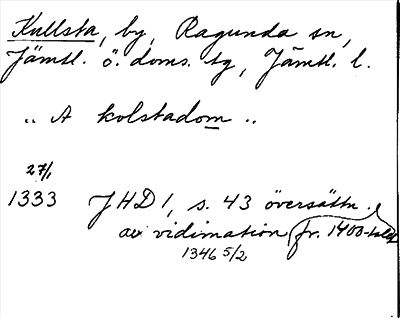 Kullsta, by, Ragunda sn,
Jämtl. ö. doms. tg, Jämtl. l.
.. A kolstadom ..
27/1
1333 JHD 1, s. 43 översättn.
av vidimation fr. 1400-talet
1346 5/2